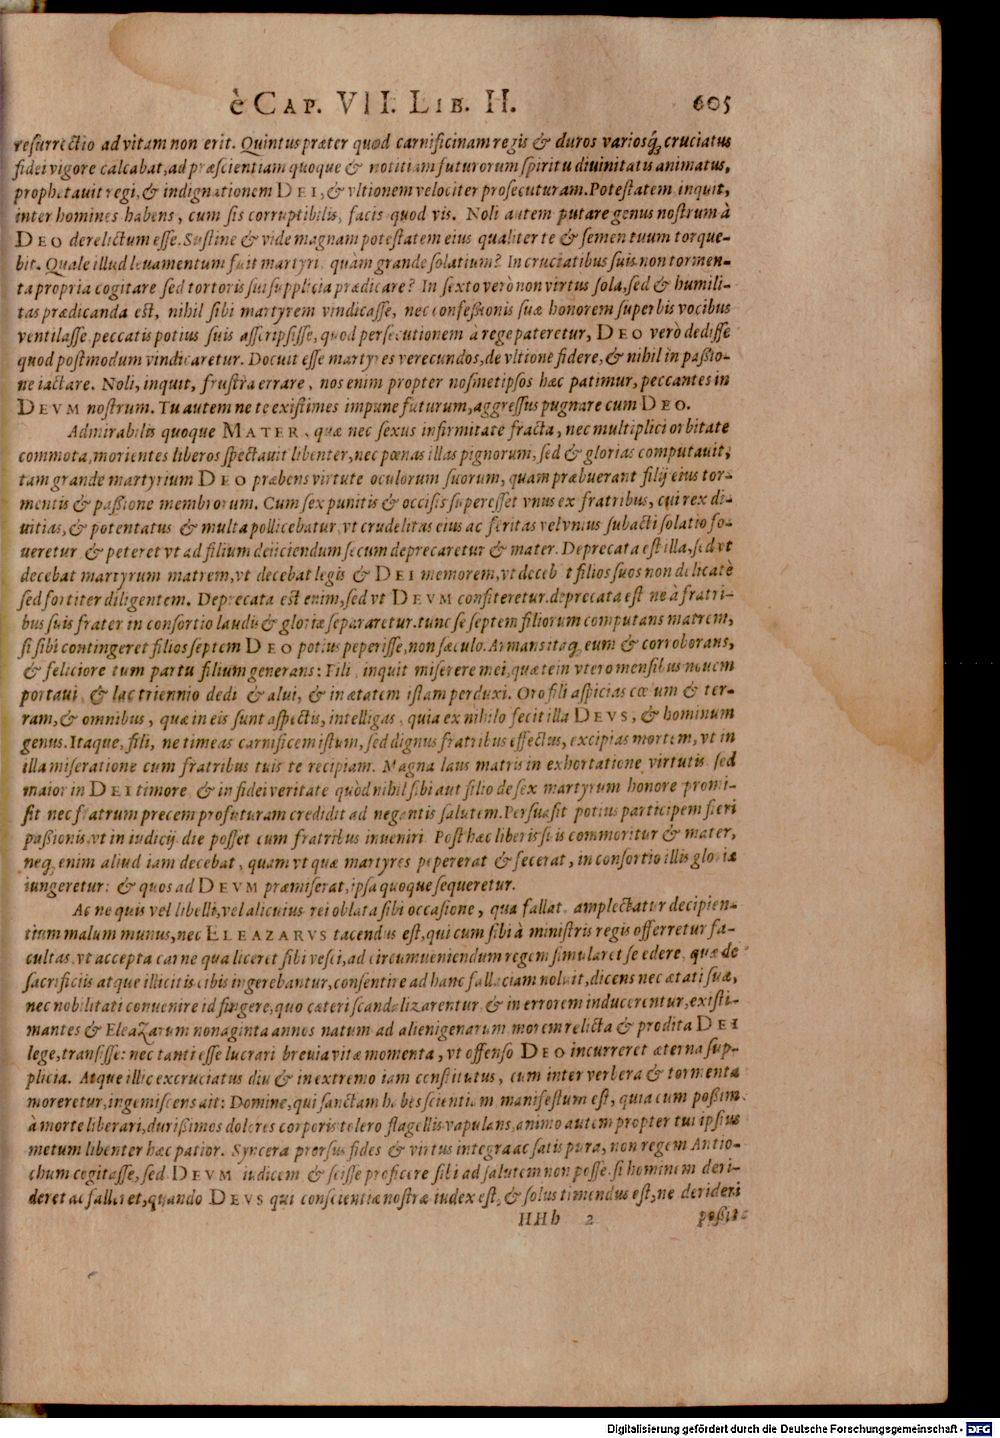 è CAP. VII. LIB. II. 605
resurrectio ad vitam non erit. Quintus præter quod carnificinam regis & duros variosq; cruciatus
fidei vigore calcabat, ad præscientiam quoque & notitiam futurorum spiritu diuinitatis animatus,
prophetauit regi, & indignationem DEI, & vltionem velociter prosecuturam. Potestatem, inquit,
inter homines habens, cum sis corruptibilis, facis quod vis. Noli autem putare genus nostrum à
DEO derelictum esse. Sustine & vide magnam potestatem eius qualiter te & semen tuum torque-
bit. Quale illud leuamentum fuit martyri, quàm grande solatium? In cruciatibus suis non tormen-
ta propria cogitare sed tortoris sui supplicia prædicare? In sexto verò non virtus sola, sed & humili-
tas prædicanda est, nihil sibi martyrem vindicasse, nec confeßionis suæ honorem superbis vocibus
ventilasse, peccatis potius suis asscripsisse, quod persecutionem à rege pateretur, DEO verò dedisse
quod postmodum vindicaretur. Docuit esse martyres verecundos, de vltione fidere, & nihil in paßio-
ne iactare. Noli, inquit, frustra errare, nos enim propter nosmetipsos hæc patimur, peccantes in
DEVM nostrum. Tu autem ne te existimes impune futurum, aggressus pugnare cum DEO.
Admirabilis quoque MATER, quæ nec sexus infirmitate fracta, nec multiplici orbitate
commota, morientes liberos spectauit libenter, nec pœnas illas pignorum, sed & glorias computauit,
tam grande martyrium DEO præbens virtute oculorum suorum, quam præbuerant filij eius tor-
mentis & paßione membrorum. Cum sex punitis & occisis superesset vnus ex fratribus, cui rex di-
uitias, & potentatus & multa pollicebatur, vt crudelitas eius ac feritas vel vnius subacti solatio fo-
ueretur & peteret vt ad filium deiiciendum secum deprecaretur & mater. Deprecata est illa, sed vt
decebat martyrum matrem, vt decebat legis & DEI memorem, vt deceb t filios suos non delicatè
sed fortiter diligentem. Deprecata est enim, sed vt DEVM confiteretur. deprecata est ne à fratri-
bus suis frater in consortio laudis & gloriæ separaretur. tunc se septem filiorum computans matrem,
si sibi contingeret filios septem DEO potius peperisse, non sæculo. Armans itaq; eum & corroborans,
& feliciore tum partu filium generans: Fili, inquit miserere mei, quæ te in vtero mensibus nouem
portaui, & lac triennio dedi & alui, & in ætatem istam perduxi. Oro fili aspicias cœ um & ter-
ram, & omnibus, quæ in eis sunt aspectis, intelligas, quia ex nihilo fecit illa DEVS, & hominum
genus. Itaque, fili, ne timeas carnificem istum, sed dignus fratribus effectus, excipias mortem, vt in
illa miseratione cum fratribus tuis te recipiam. Magna laus matris in exhortatione virtutis sed
maior in DEI timore & in fidei veritate quòd nihil sibi aut filio de sex martyrum honore promi-
sit nec fratrum precem profuturam credidit ad negantis salutem. Persuasit potius participem fieri
paßionis, vt in iudicij die posset cum fratribus inueniri. Post hæc liberis suis commoritur & mater,
neq; enim aliud iam decebat, quam vt quæ martyres pepererat & fecerat, in consortio illis gloriæ
iungeretur: & quos ad DEVM præmiserat, ipsa quoque sequeretur.
Ac ne quis vel libelli, vel alicuius rei oblata sibi occasione, qua fallat, amplectatur decipien-
tium malum munus, nec ELEAZARVS tacendus est, qui cum sibi à ministris regis offerretur fa-
cultas, vt accepta carne qua liceret sibi vesci, ad circumueniendum regem simularet se edere, quæ de
sacrificiis atque illicitis cibis ingerebantur, consentire ad hanc fallaciam noluit, dicens nec ætati suæ,
nec nobilitati conuenire id fingere, quo cæteri scandalizarentur & in errorem inducerentur, existi-
mantes & Eleazarum nonaginta annos natum ad alienigenarum morem relicta & prodita DEI
lege, transisse: nec tanti esse lucrari breuia vitæ momenta, vt offenso DEO incurreret æterna sup-
plicia. Atque ille excruciatus diu & in extremo iam constitutus, cum inter verbera & tormenta
moreretur, ingemiscens ait: Domine, qui sanctam habes scientiam manifestum est, quia cum poßim
à morte liberari, durißimos dolores corporis tolero flagellis vapulans, animo autem propter tui ipsius
metum libenter hæc patior. Syncera prorsus fides & virtus integra ac satis pura, non regem Antio-
chum cogitasse, sed DEVM iudicem & scisse proficere sibi ad salutem non posse, si hominem deri-
deret ac falleret, quando DEVS qui conscientiæ nostræ iudex est, & solus timendus est, ne derideri
HHh 2 poßit
Digitalisierung gefördert durch die Deutsche Forschungsgemeinschaft - DFG